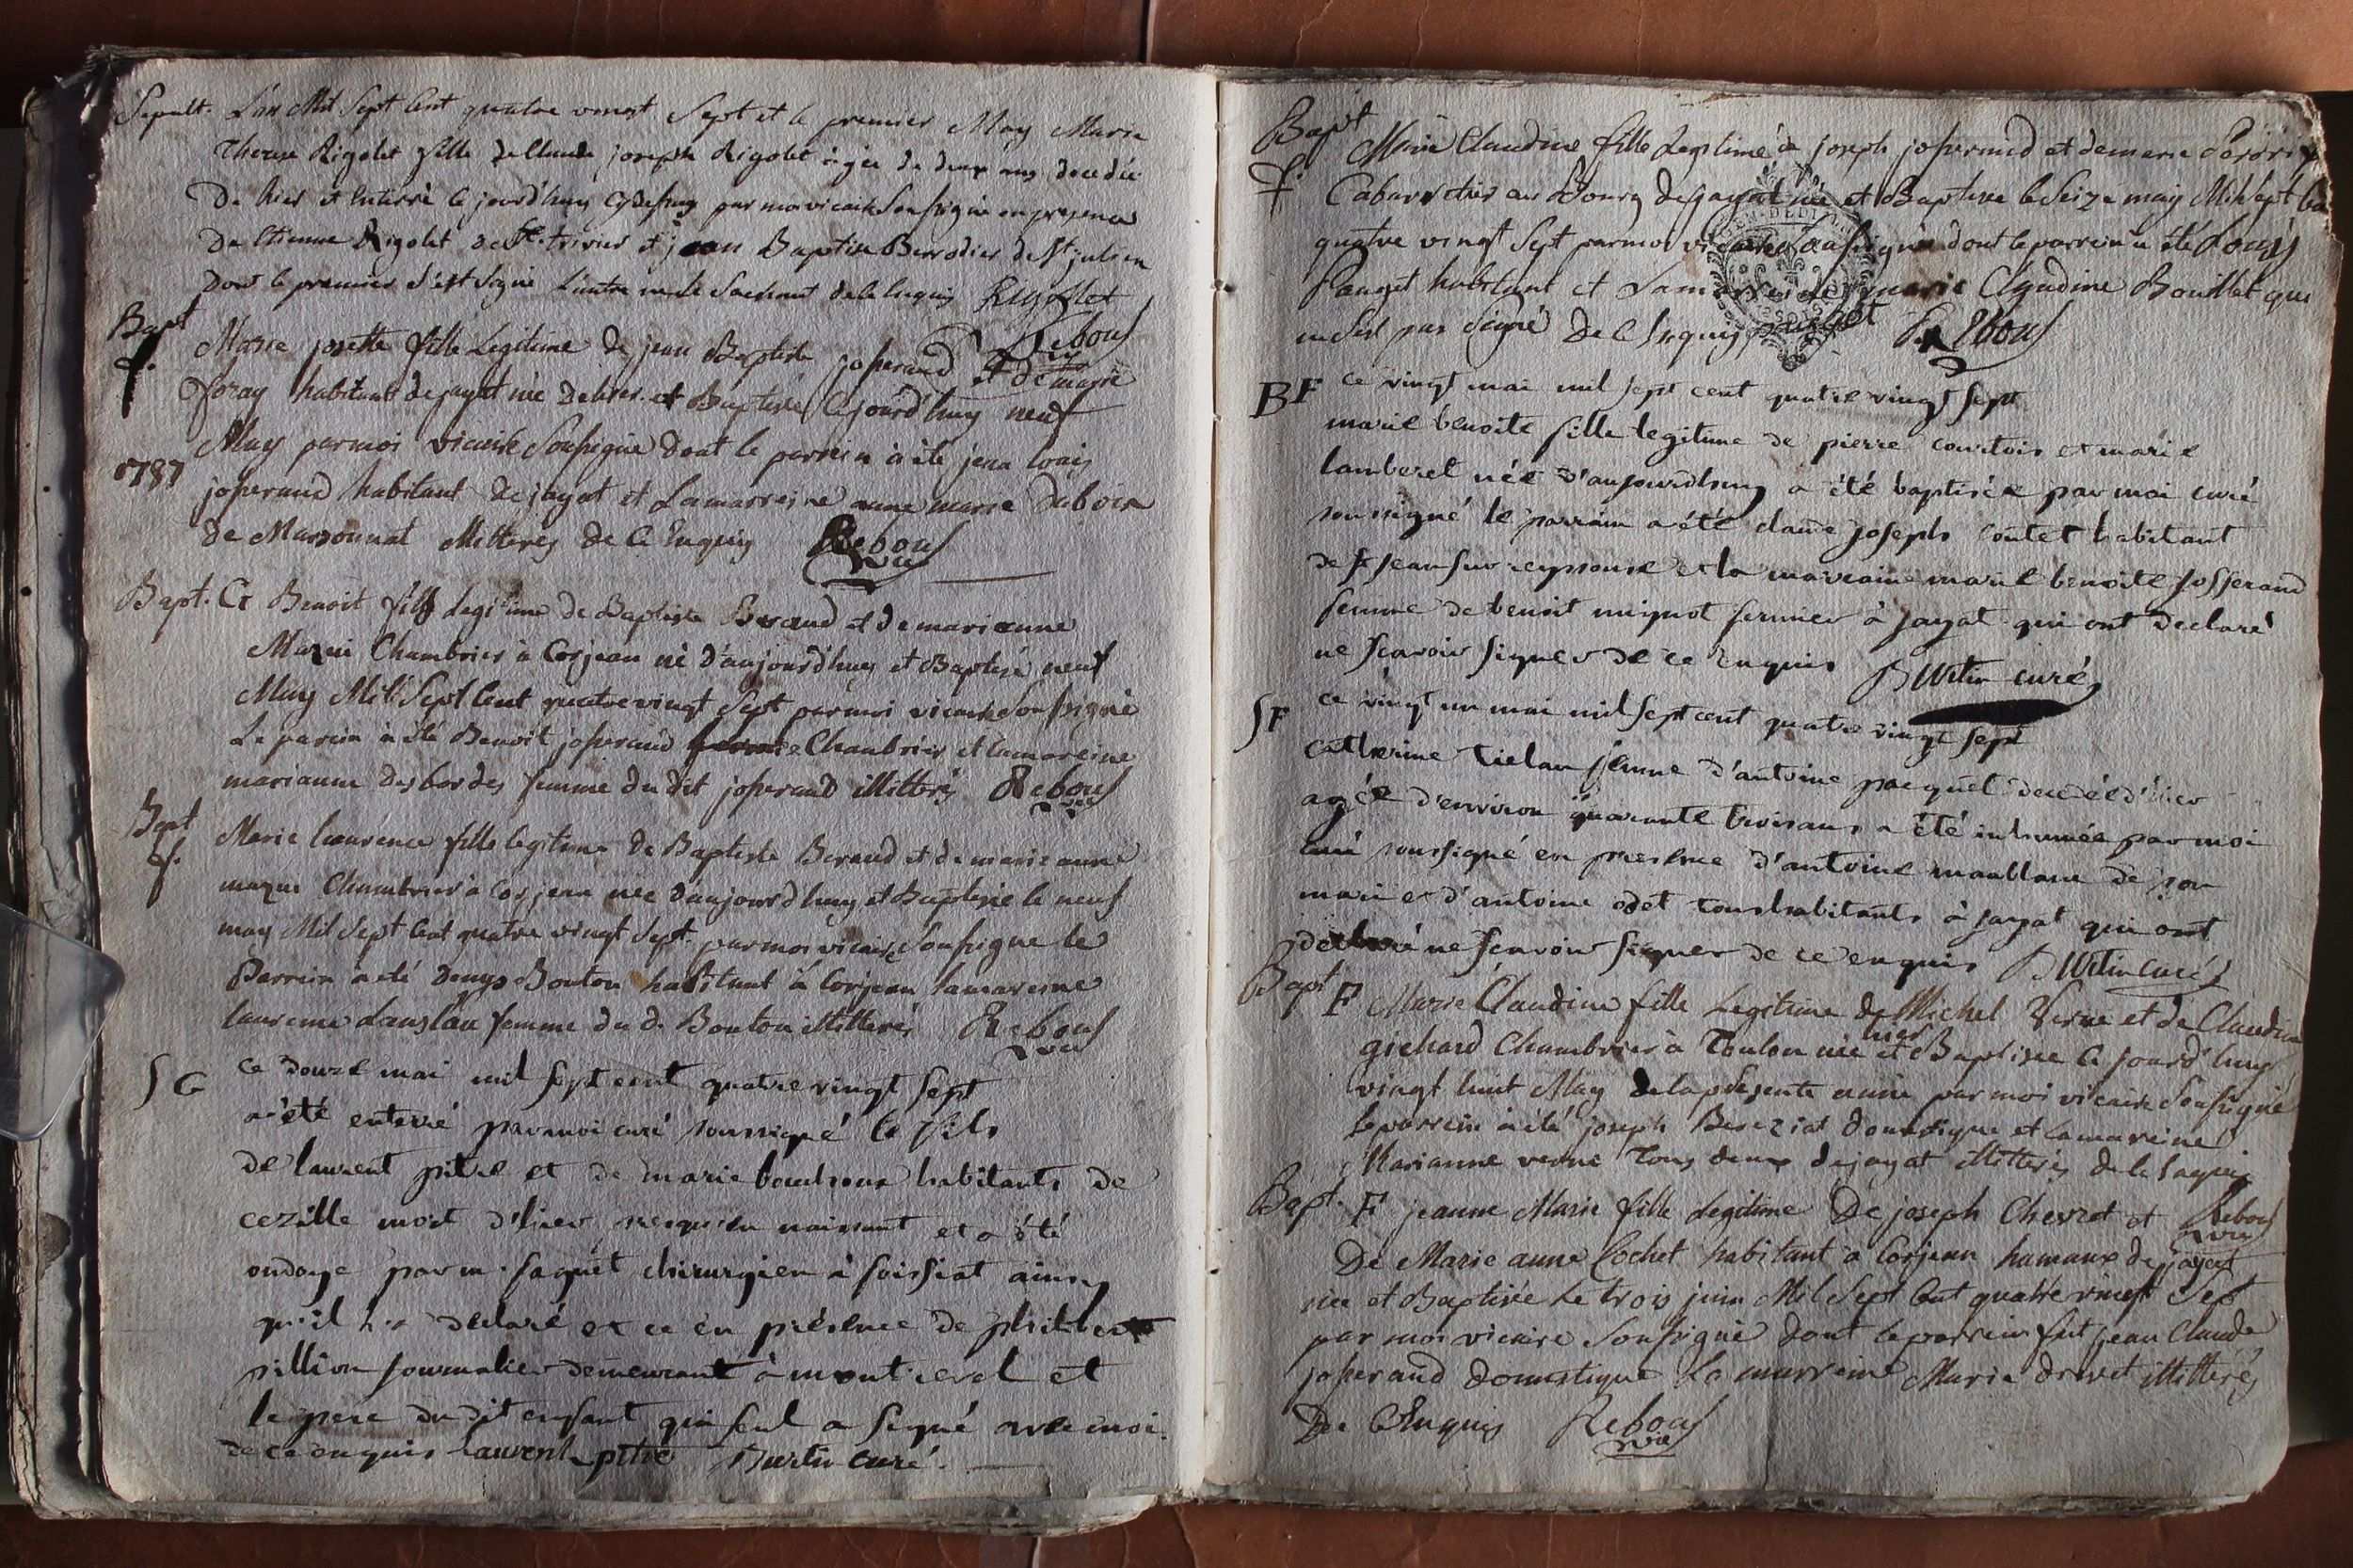 Sepult. L'an Mil Sept Cent quatre vingt Sept et le premier May Marie
Therese Rigolet fille de Claude joseph Rigolet agée de deux ans decedée
De hier et Enterré ce jourd'huy par moi vicaire Soussigné en presence
De Etienne Rigolet de St. trivier et jean Baptiste Berrodier de St julien
Dont le premier s'est signé L'autre ne le Sachant de ce Enquis Rigollet
Rebouf
Bapt
f.
Marie josette fille Legitime de jean Baptiste josserand et de marie
foray habitant de jayat née de hier et Baptisée ce jourd'huy neuf
May par moi vicaire Soussigné dont le parrein à été jean louis
1787
josserand habitant de jayat et La marreine anne marie dubois
de Marsonnat illitterés de ce Enquis Rebouf
vic
Bapt. G Benoit fils Legitime de Baptiste Beraud et de marianne
Mazui Chambrier à Corjean né d'aujourd'huy et Baptisé neuf
May Mil Sept Cent quatre vingt Sept par moi vicaire Soussigné
Le parein à été Benoit josserand Chambrier et la mareine
marianne desbordes femme du dit josserand illitterés Rebouf
vic
Bapt
f.
Marie Laurence fille legitime de Baptiste Beraud et de marie anne
mazui Chambrier à Corjean née d'aujourd'huy et Baptisée le neuf
may Mil Sept Cent quatre vingt Sept par moi vicaire Soussigné le
Perrein à été denys Bouton habitant à Corjean la mareine
laurence femme du d. Bouton illitterés Rebouf
vic
S G ce douze mai mil sept cent quatre vingt sept
a été enterré par moi curé soussigné le fils
de laurent pitre et de marie habitants de
cezille mort d'hier naissant et a été
ondoyé par m. saquet chirurgien à foissiat ainsy
qu'il l'a declaré et ce en présence de philibert
pillion journalier demeurant à montrevel et
le pere du dit enfant qui seul a signé avec moi
de ce enquis laurent pitre Burtin curé.
Bapt
f.
Marie Claudine fille Legitime de joseph josserand et de marie
Cabaretier au Bourg de jayat née et Baptisée le Seize may Mil Sept Cent
quatre vingt Sept par moi vicaire Soussigné dont le parrein a été Louis
Pauget habitant et La marreine marie Claudine Bouillet qui
n'est pas signé De ce Enquis pauget Rebouf
BF ce vingt mai mil sept cent quatre vingt sept
marie benoite fille legitime de pierre courtois et marie
lamberet née d'aujourdhuy a été baptisée par moi curé
soussigné le parrain a été claude joseph contet habitant
de st jean sur reyssouse et la marraine marie benoite josserand
femme de benoit mignot fermier à jayat qui ont declaré
ne scavoir signer de ce enquis Burtin curé
SF ce vingt un mai mil sept cent quatre vingt sept
catherine femme d'antoine pacquet decedée d'hier
agée d'environ quarante trois ans a été inhumée par moi
curé soussigné en presence d'antoine maublanc de son
mari et d'antoine odet tous habitants à jayat qui ont
declaré ne scavoir signer de ce enquis Burtin curé
Bapt F Marie Claudine fille Legitime de Michel Verne et de Claudine
hier
gichard Chambrier à Toulon née et Baptisée ce jourd'huy
vingt huit May de la presente année par moi vicaire Soussigné
le parrein à été joseph Bereziat domestique et la mareine
Marianne verne Tous deux de jayat illitterés de ce Enquis
Rebouf
vic
Bapt. F jeanne Marie fille Legitime De joseph Chevret et
De Marie anne Cochet habitant à Corjean hameaux de jayat
née et Baptisée Le trois juin Mil Sept Cent quatre vingt Sept
par moi vicaire Soussigné dont le parrein fut jean Claude
josserand domestique La marreine Marie drevet illitterés
De ce Enquis Rebouf
vic